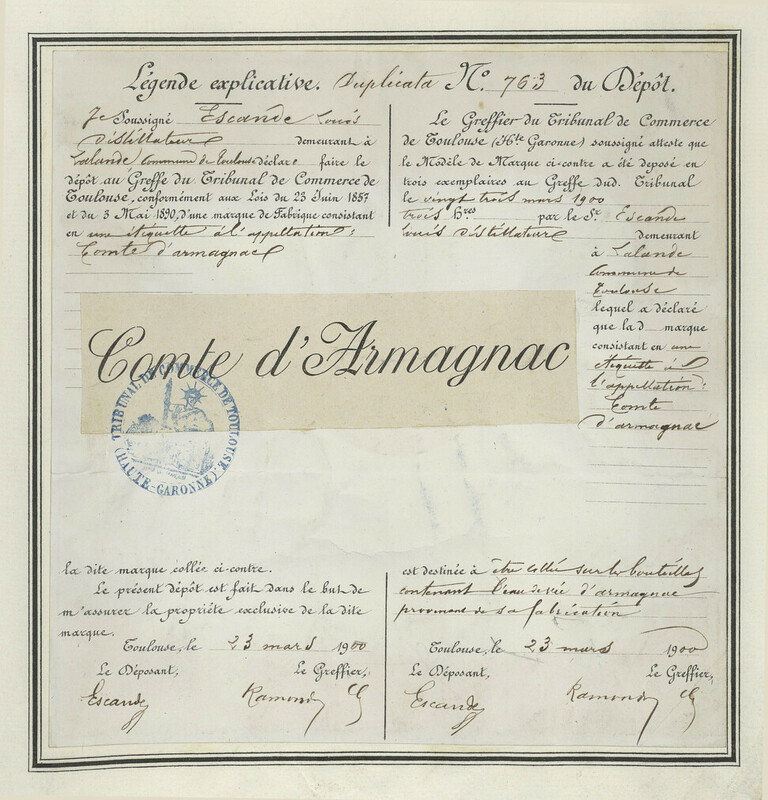 Légende explicative. Duplicata N°. 763 du Dépôt.
Je Soussigné Escande Louis
Distillateur demeurant à
Lalande Commune de Toulouse déclare faire le
dépôt au Greffe du Tribunal de Commerce de
Toulouse, conformément aux Lois du 23 Juin 1857
et du 3 Mai 1890, d'une marque de Fabrique consistant
en une étiquette à l'appellation :
Comte d'armagnac
Le Greffier du Tribunal de Commerce
de Toulouse (Hte Garonne) soussigné atteste que
le Modèle de Marque ci-contre a été deposé en
trois exemplaires au Greffe dud. Tribunal
le vingt trois mars 1900
trois Hres par le Sr. Escande
Louis Distillateur demeurant
à Lalande
Commune de
Toulouse
lequel a déclaré
que la d marque
consistant en une
étiquette à
l'appellation :
Comte
d'armagnac
Comte d'Armagnac
TRIBUNAL DE COMMERCE DE TOULOUSE
(HAUTE-GARONNE)
la dite marque collée ci-contre.
Le présent dépôt est fait dans le but de
m'assurer la propriéte exclusive de la dite
marque.
Toulouse, le 23 mars 1900
Le Déposant, Le Greffier,
Escande Ramond
est destinée à être collée sur les bouteilles
contenant l'eau de vie d'armagnac
provenant de sa fabrication
Toulouse, le 23 mars 1900
Le Déposant, Le Greffier,
Escande Ramond